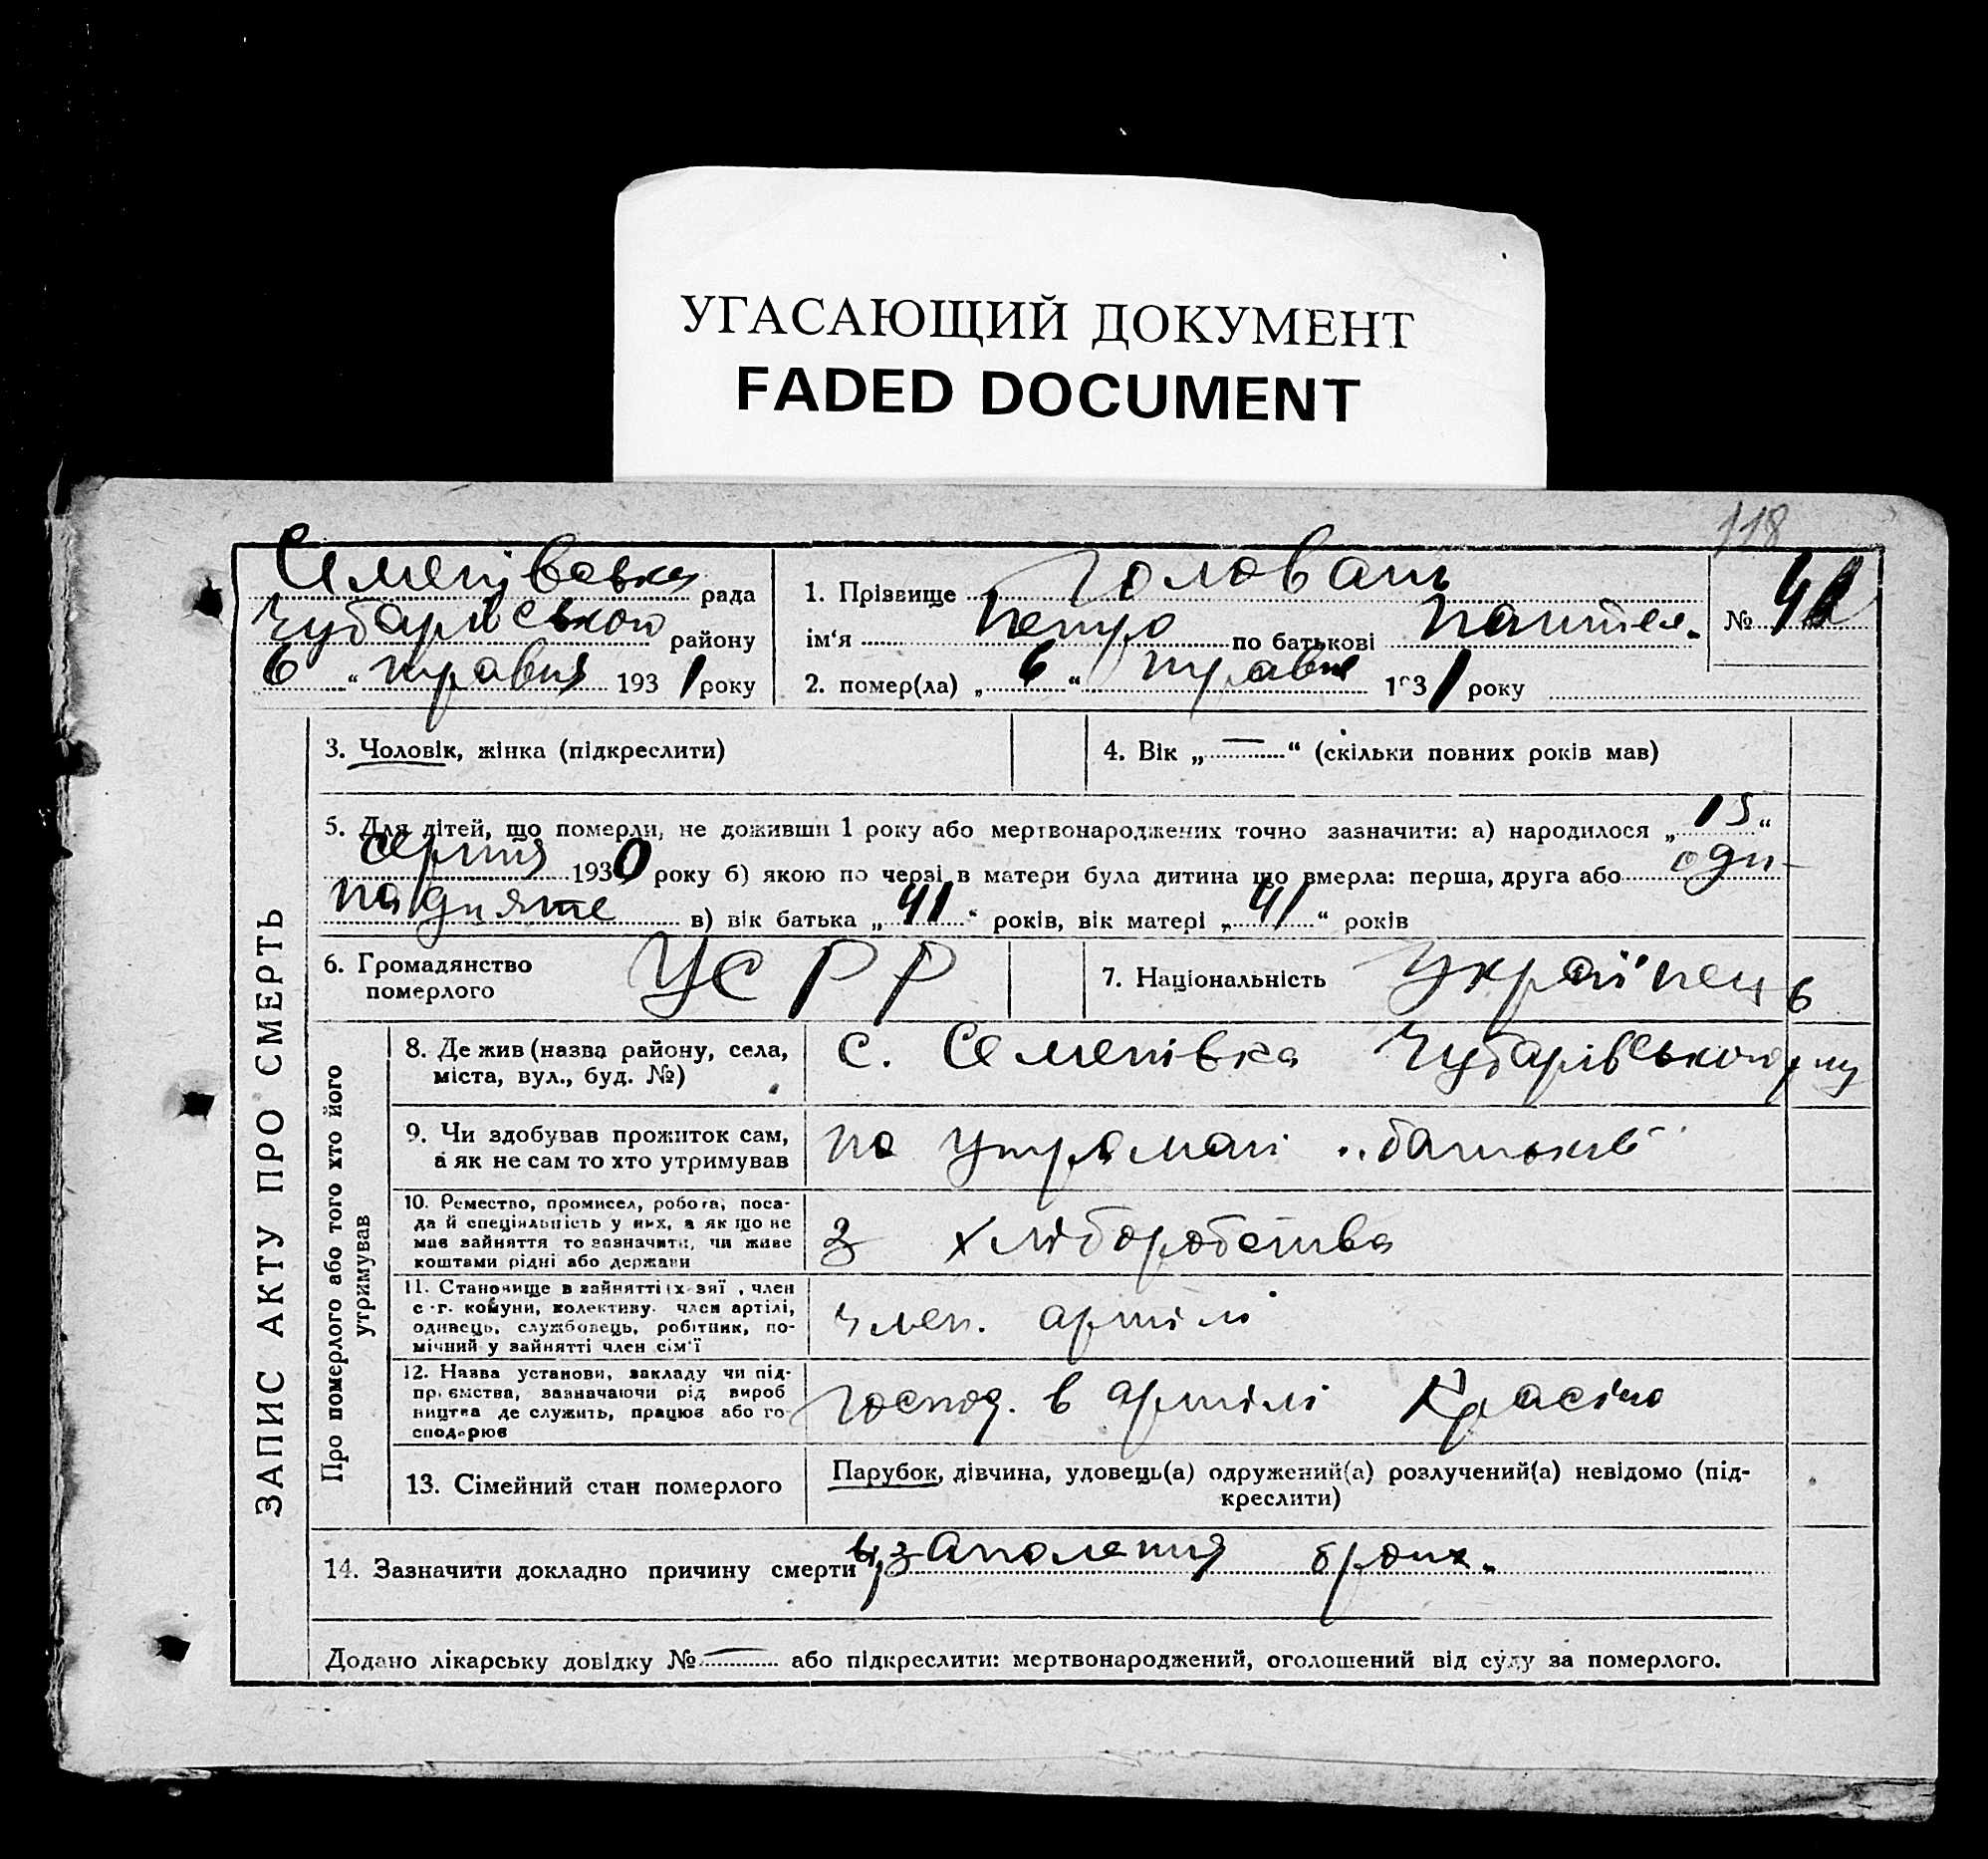 УГАСАЮЩИЙ ДОКУМЕНТ
FADED DOCUMENT
118
Семенівська рада
Чубарівського району
6 “ травня 1931 року
1. Прізвище Головань
ім‘я Петро по батькові Пантел.
2. помер(ла) „ 6 “ травня 1931 року
№
ЗАПИС АКТУ ПРО СМЕРТЬ
3. Чоловік, жінка (підкреслити)
4. Вік „ — “ (скільки повних років мав)
5. Для дітей, що померли, не доживши 1 року або мертвонароджених точно зазначити: а) народилося „ 15 “
серпня 1930 року б) якою по черзі в матери була дитина що вмерла: перша, друга або оди-
надцяте в) вік батька „ 41 “ років, вік матері „ 41 “ років
6. Громадянство
померлого
УСРР
7. Національність Українець
Про померлого або того хто його
утримував
8. Де жив (назва району, села,
міста, вул., буд. №)
с. Семенівка Чубарівського р-ну
9. Чи здобував прожиток сам,
а як не сам то хто утримував
на утриман і батьків
10. Ремество, промисел, робота, поса-
да й спеціяльність у них, а як що не
має зайняття то зазначити, чи живе
коштами рідні або держави
З хліборобства
11. Становище в зайнятті (х-зяї , член
с.-г. комуни, колективу, член артілі,
одинець, службовець, робітник, по-
мічний у зайнятті член сім‘ї
член. артілі
12. Назва установи, закладу чи під-
приємства, зазначаючи рід вироб
ництва де служить, працює або го-
сподорює
господ. в артілі Красіна
13. Сімейний стан померлого
Парубок, дівчина, удовець(а) одружений(а) розлучений(а) невідомо (під-
креслити)
14. Зазначити докладно причину смерти від запалення бронх.
Додано лікарську довідку № — або підкреслити: мертвонароджений, оголошений від суду за померлого.